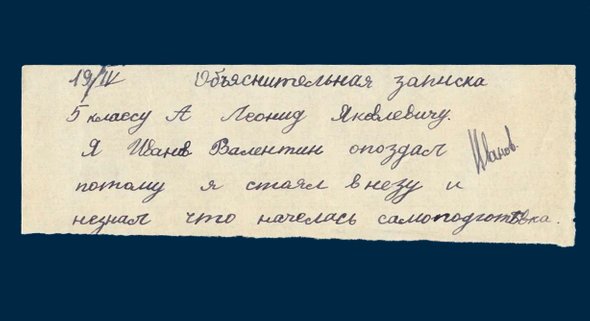 19/IV Объяснительная записка
5 классу А Леонид Яковлевичу.
Я Иванов Валентин опоздал
Иванов.
потому я стоял внезу и
незнал что началась самоподготовка.